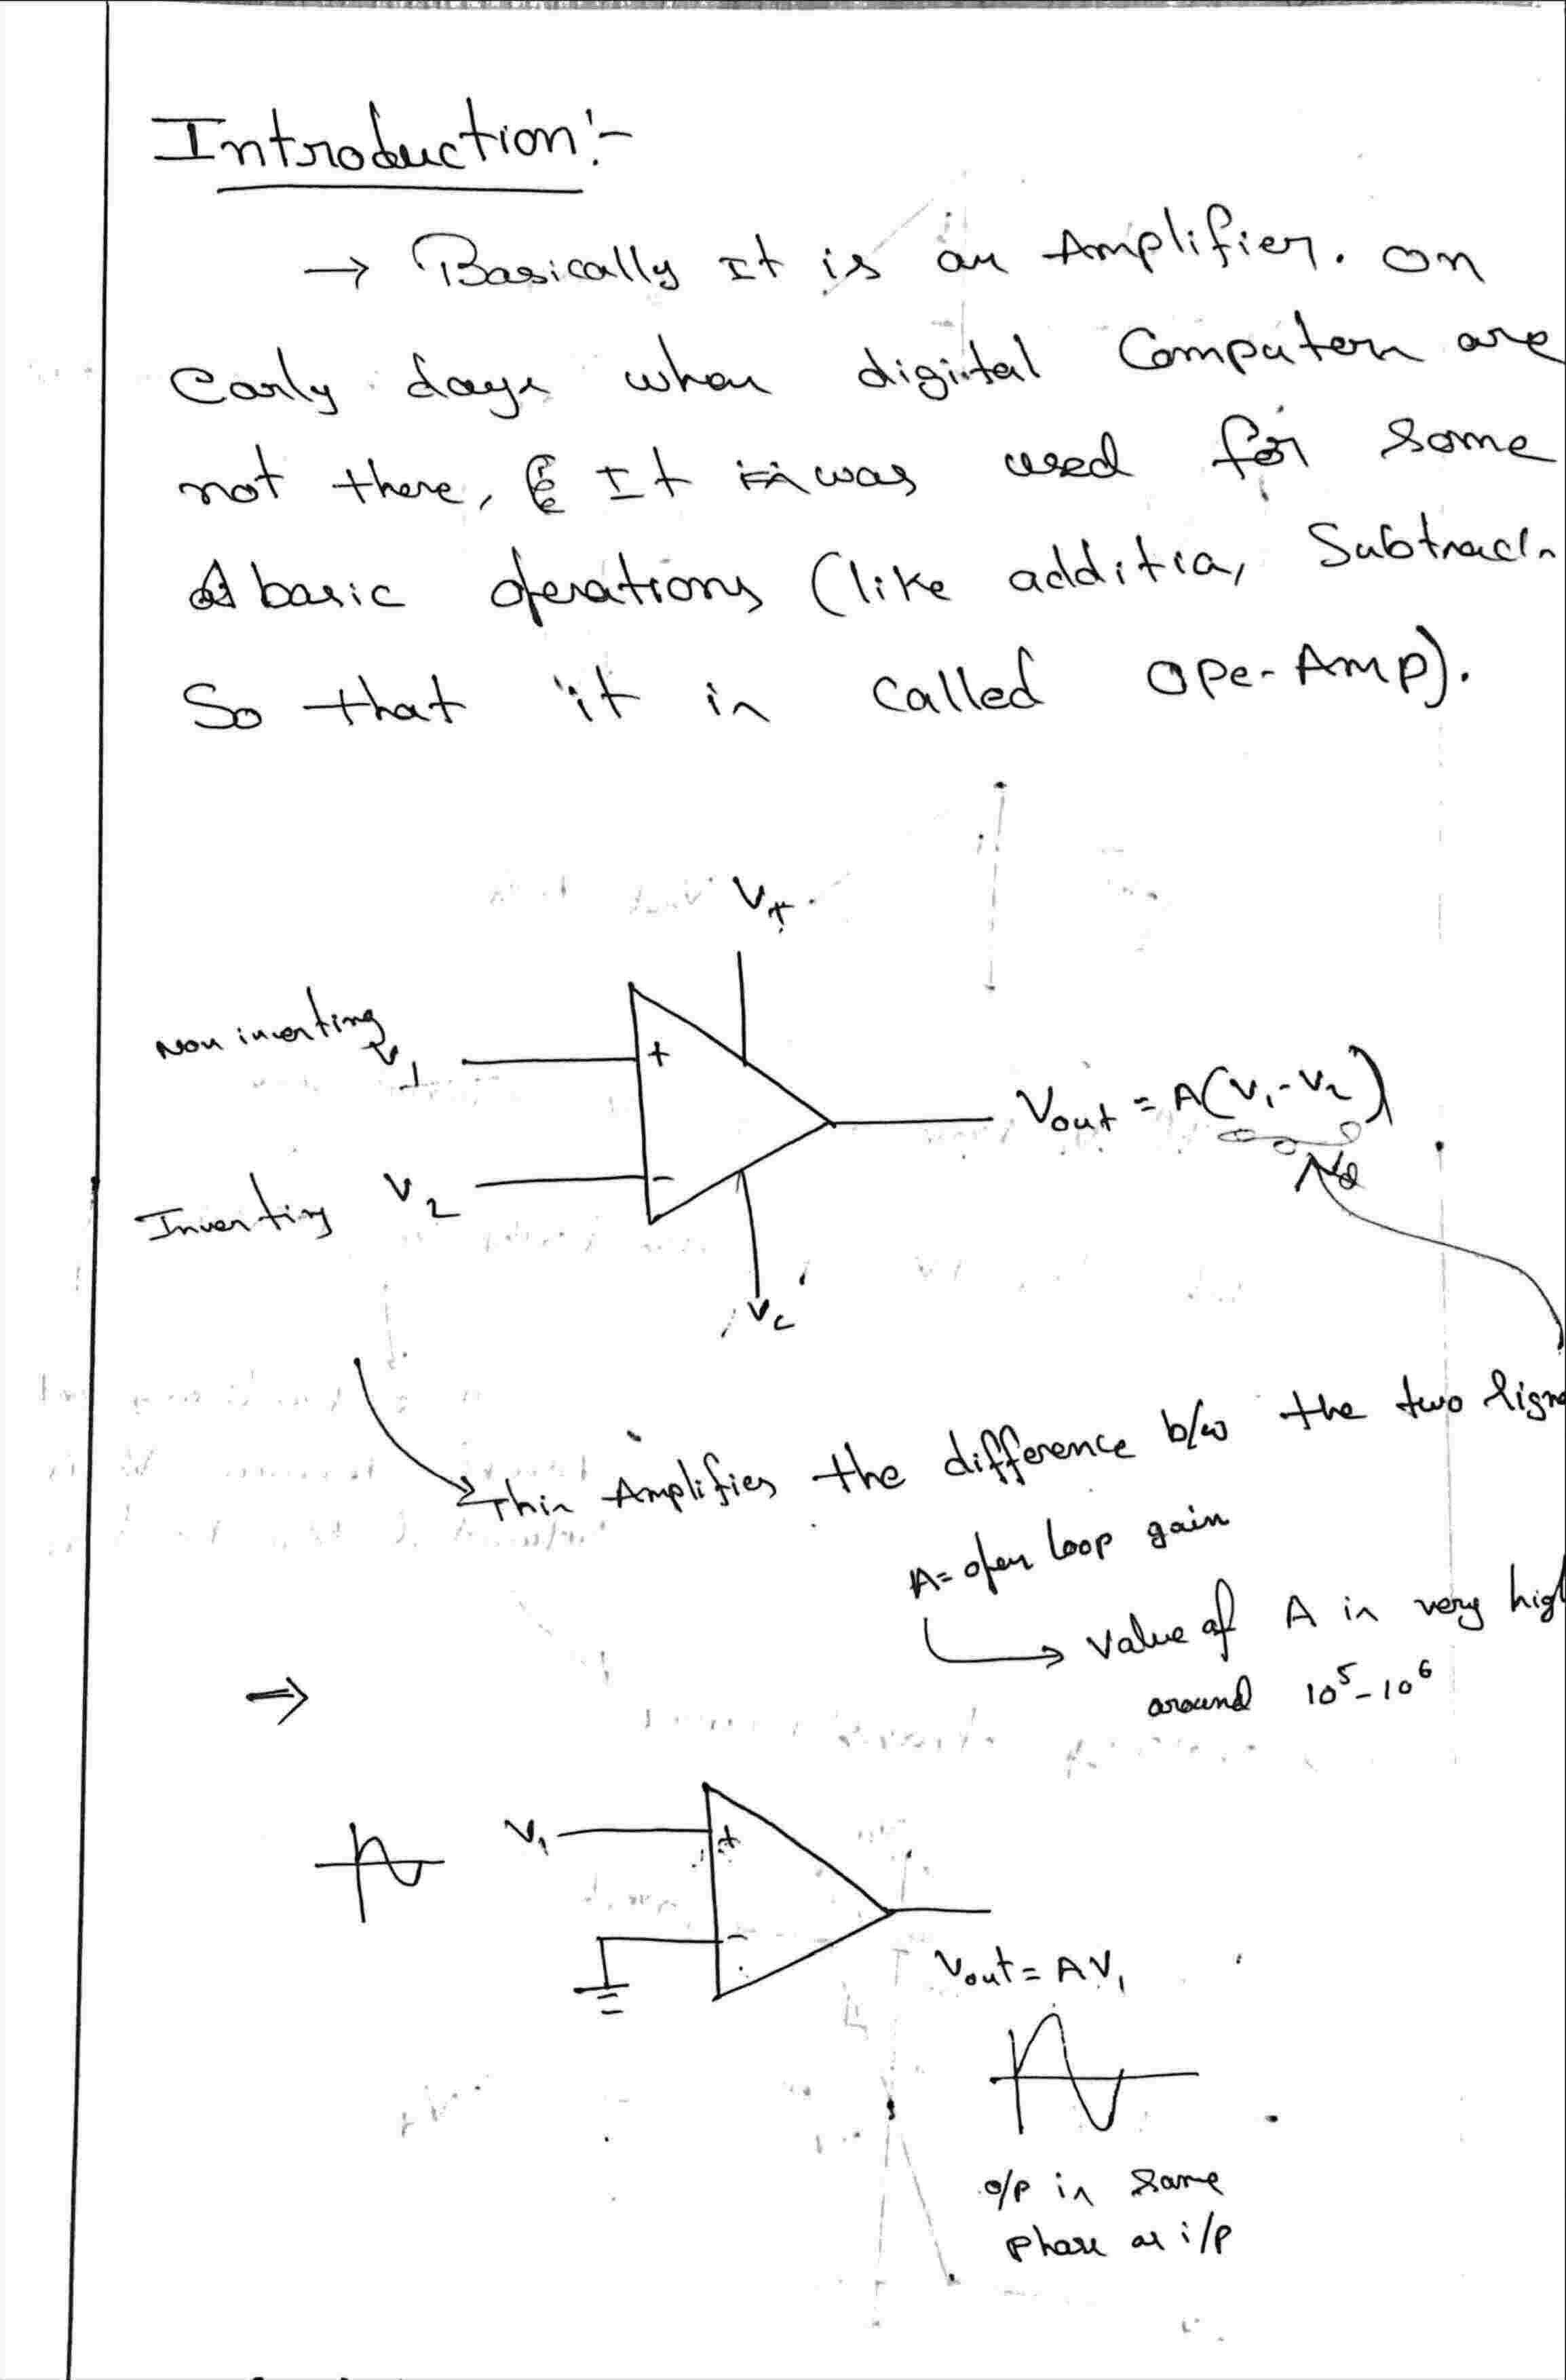 Introduction:-
→ Basically It is an Amplifier. on
Early days when digital Computers are
not there, It was used for some
basic operations (like addition, Subtractn
So that it is called Ope-Amp).
V+
Non inverting
V1
+
Vout = A(V1-V2)
Inverting V2
-
Vc
This Amplifies the difference b/w the two Signa
A = open loop gain
value of A is very high
around 10⁵-10⁶
⇒
V1
+
-
Vout = AV1
o/p in same
phase as i/p